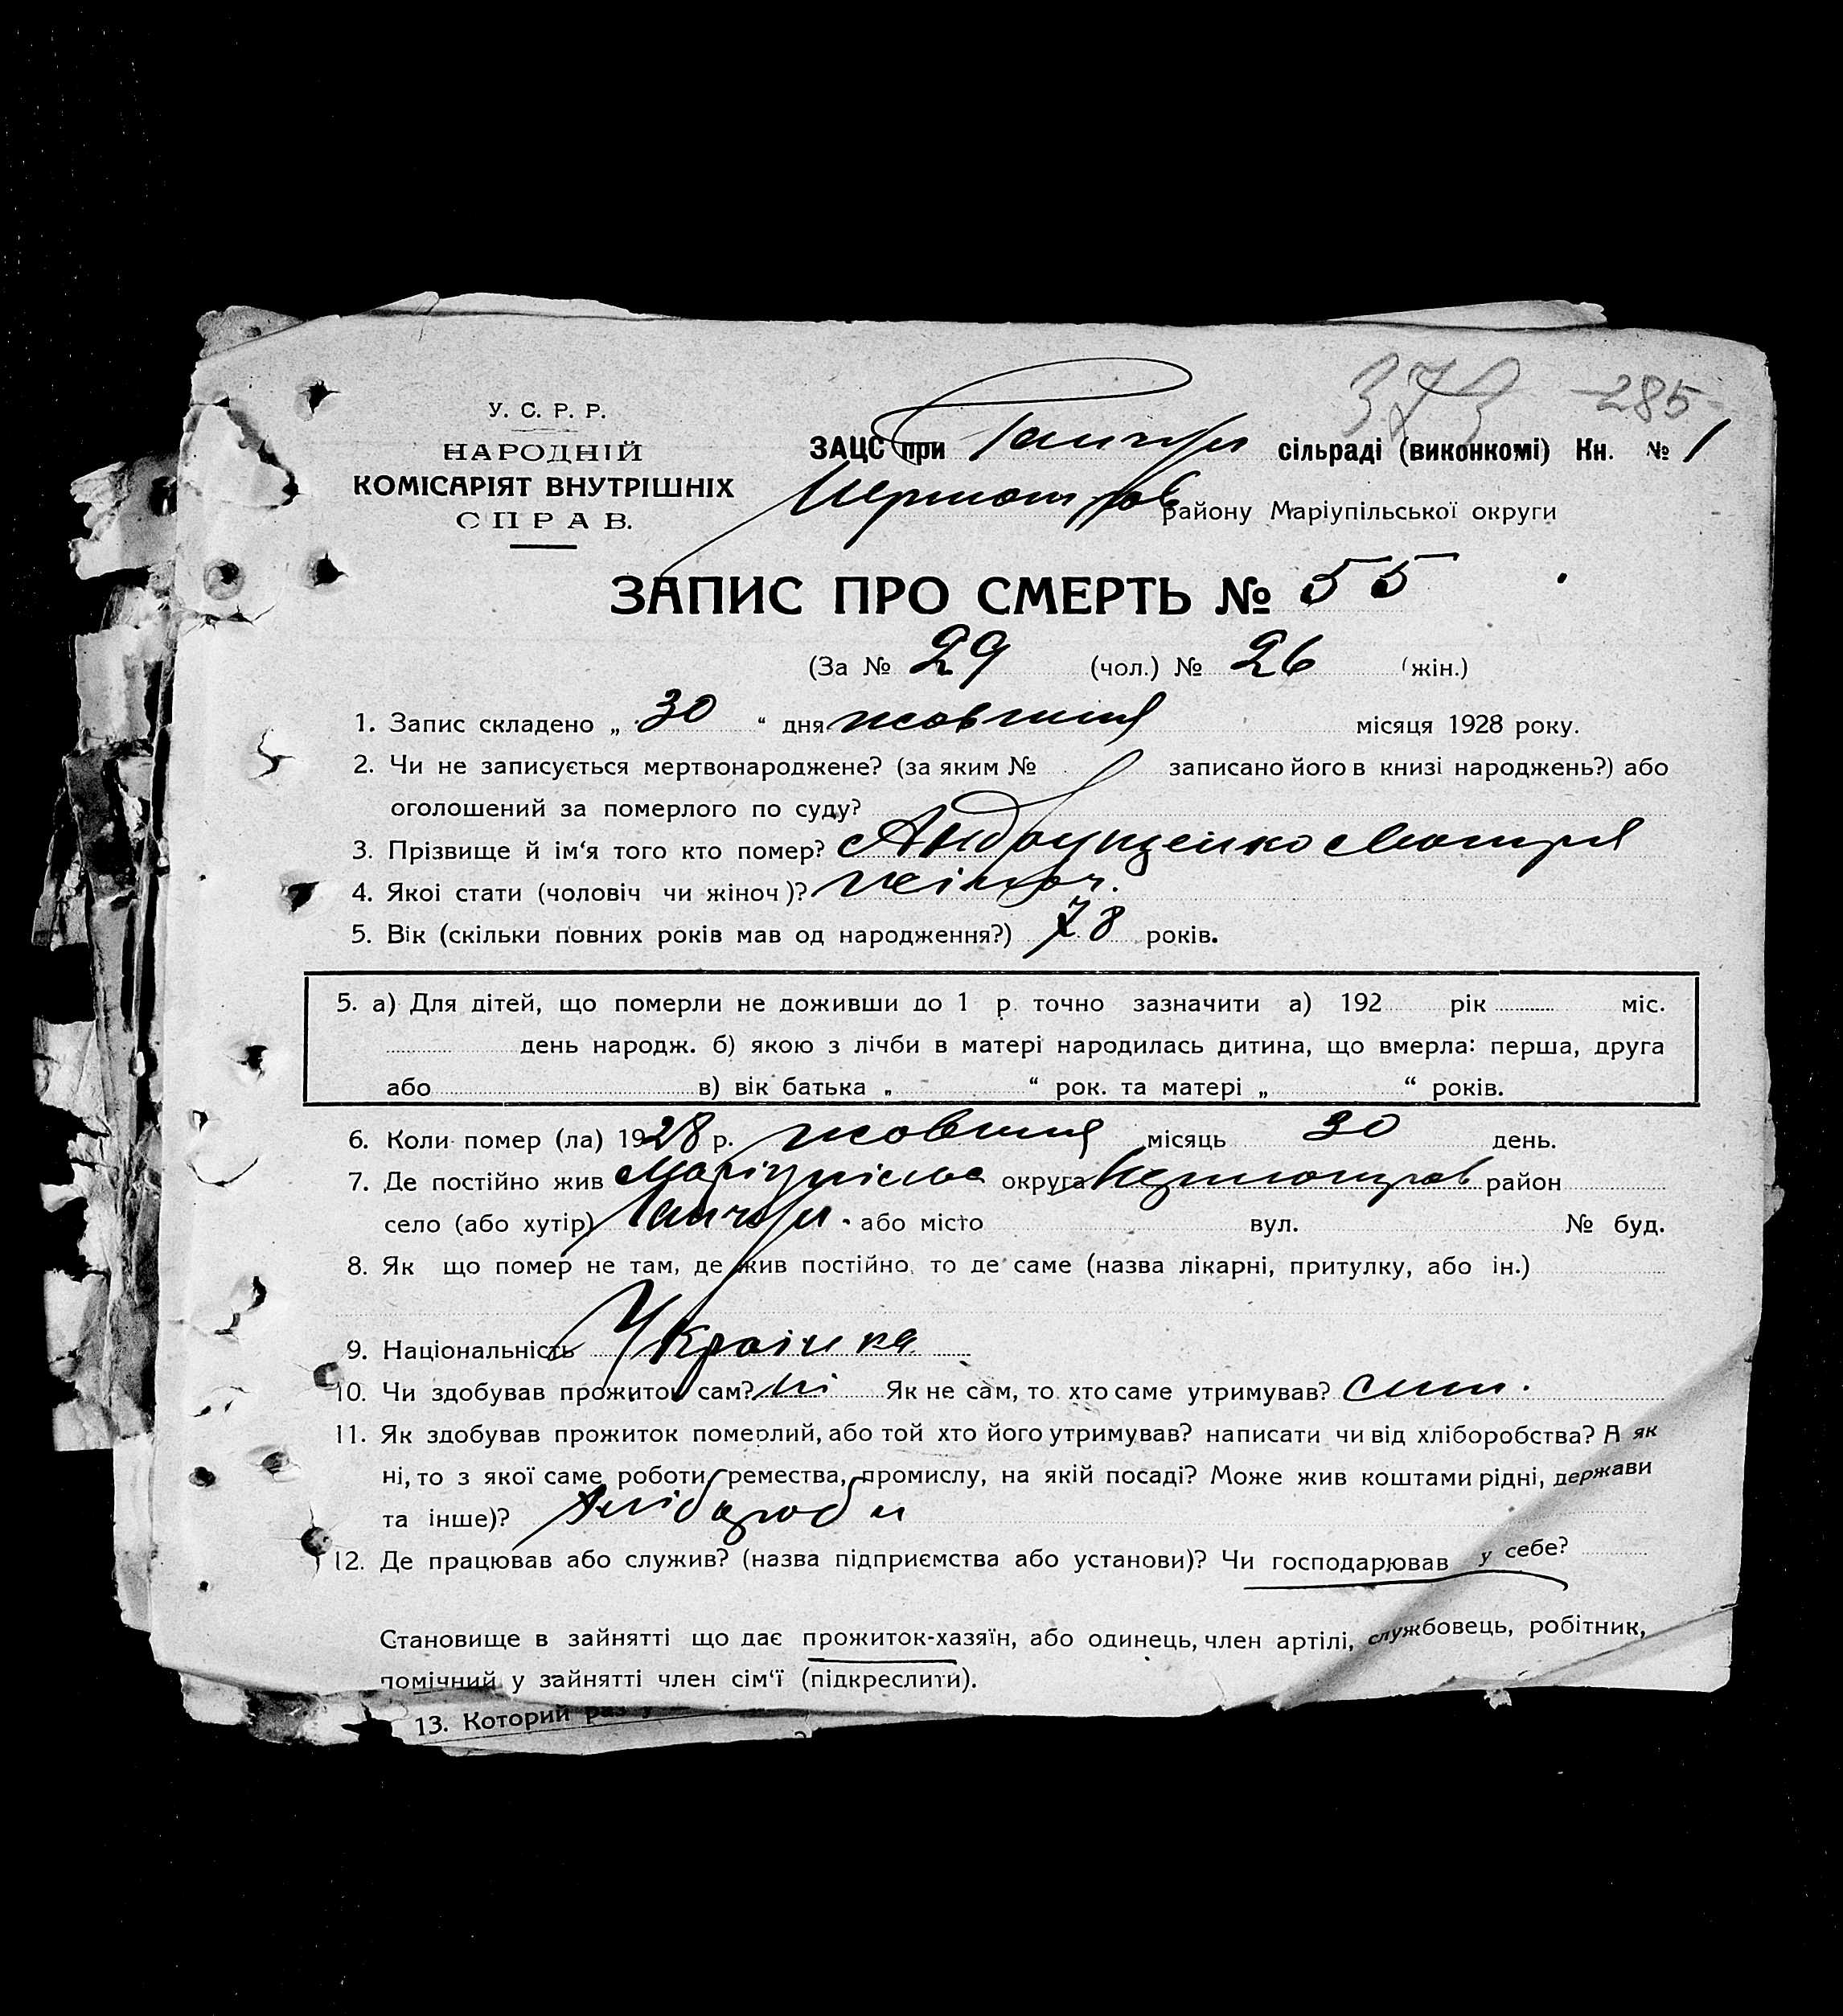 373 285
У. С. Р. Р.
НАРОДНІЙ
КОМІСАРІЯТ ВНУТРІШНІХ
СПРАВ.
ЗАЦС при сільраді (виконкомі) Кн. № 1
району Маріупільської округи
ЗАПИС ПРО СМЕРТЬ № 55
(За № 29 (чол.) № 26 (жін.)
1. Запис складено „ 30 “ дня жовтня місяця 1928 року.
2. Чи не записується мертвонароджене? (за яким № записано його в книзі народжень?) або
оголошений за померлого по суду?
3. Прізвище й ім‘я того кто помер? Андрущенко Мотря
4. Якоі стати (чоловіч чи жіноч)? жіноч.
5. Вік (скільки повних років мав од народження?) 78 років.
5. а) Для дітей, що померли не доживши до 1 р. точно зазначити а) 192 рік міс.
день народж. б) якою з лічби в матері народилась дитина, що вмерла: перша, друга
або в) вік батька „ “ рок. та матері „ “ років.
6. Коли помер (ла) 1928 р. жовтня місяць 30 день.
7. Де постійно жив Маріупільс округа район
село (або хутір) або місто вул. № буд.
8. Як що помер не там, де жив постійно, то де саме (назва лікарні, притулку, або ін.)
9. Національність Українка
10. Чи здобував прожиток сам? ні Як не сам, то хто саме утримував? син.
11. Як здобував прожиток померлий, або той хто його утримував? написати чи від хліборобства? А як
ні, то з якої саме роботи, ремества, промислу, на якій посаді? Може жив коштами рідні, держави
та інше)? Хлібороби
12. Де працював або служив? (назва підприємства або установи)? Чи господарював у себе?
Становище в зайнятті що дає прожиток-хазяїн, або одинець, член артілі, службовець, робітник,
помічний у зайнятті член сім‘ї (підкреслити).
13. Которий раз у